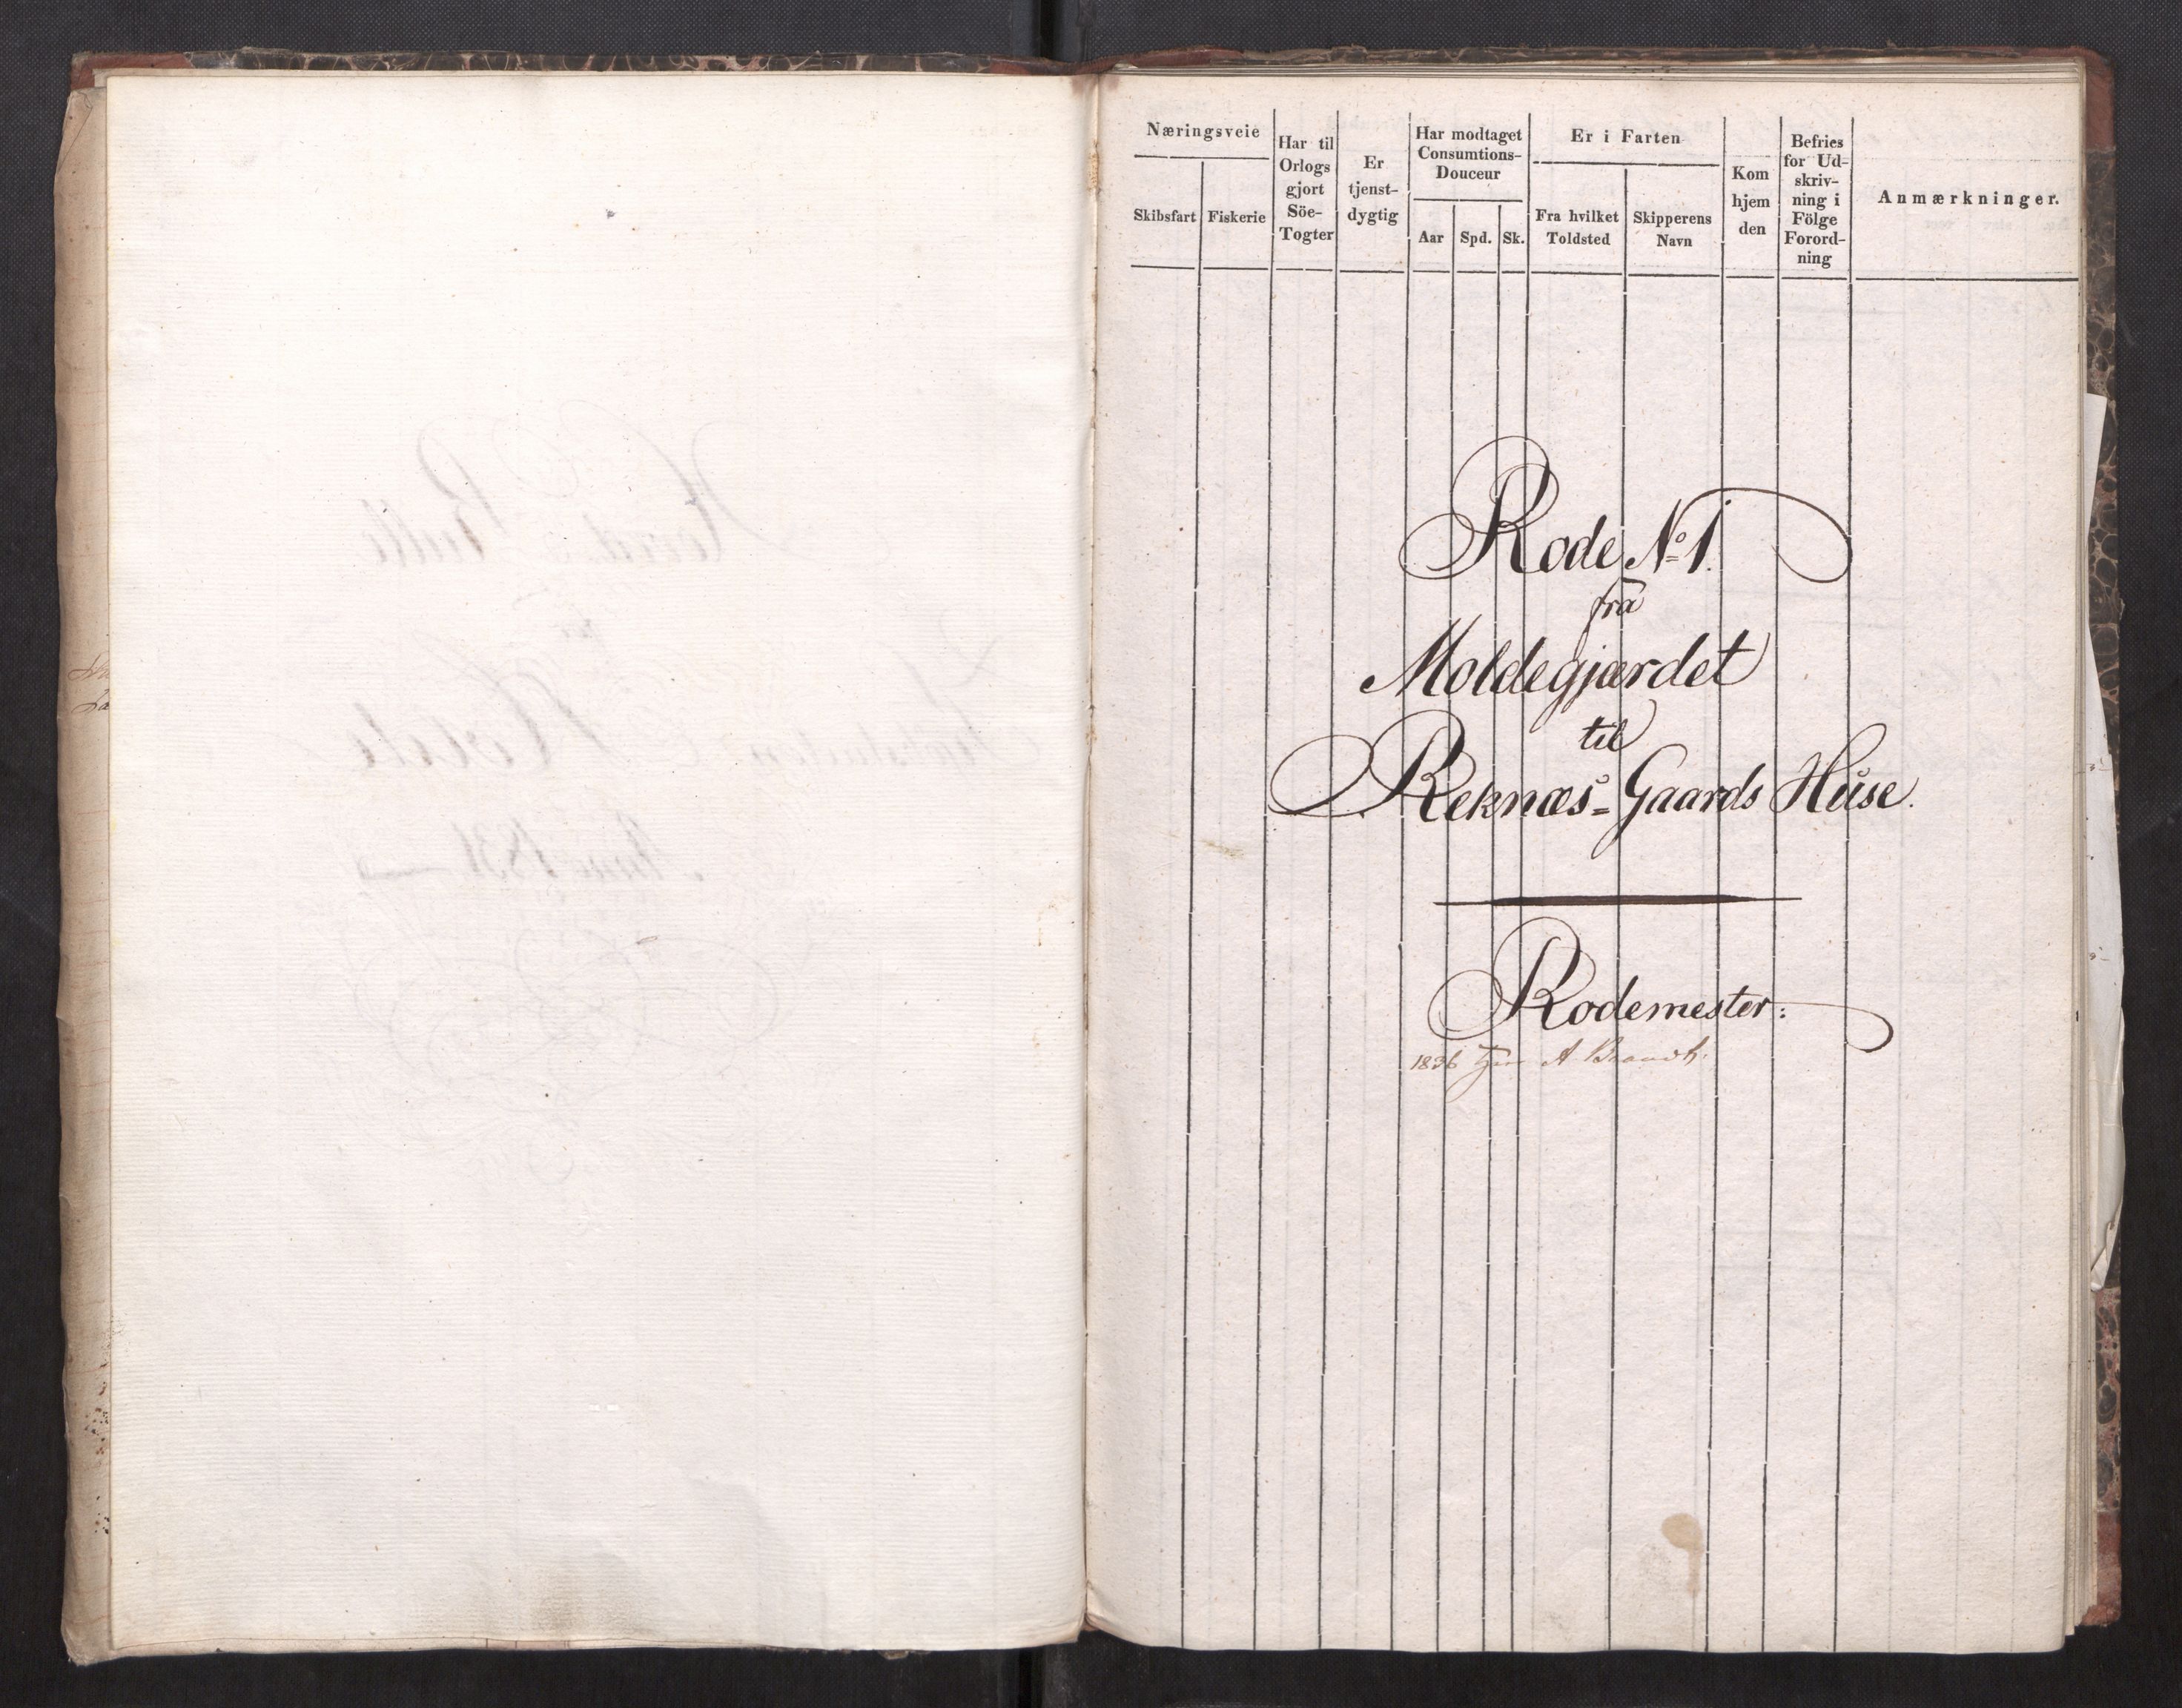 Næringsveie
Skibsfart
Fiskerie
Har til
Orlogs
gjort
Söe-
Togter
Er
tjenst-
dygtig
Har modtaget
Consumtions-
Douceur
Aar
Spd.
Sk.
Er i Farten
Fra hvilket
Toldsted
Skipperens
Navn
Kom
hjem
den
Befries
for Ud-
skriv-
ning i
Fölge
Forord-
ning
Anmærkninger.
Rode No 1.
fra
Moldegjærdet
til
Reknæs-Gaards Huse.
Rodemester:
1836 Hrr A Brandt.